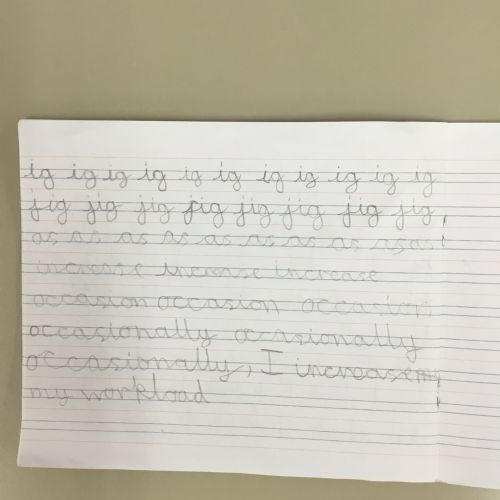 ig ig ig ig ig ig ig ig ig ig ig
jig jig jig jig jig jig jig jig
as as as as as as as as asas
increase increase increase
occasion occasion occasion
occasionally occasionally
occasionally, I increase my
my workload